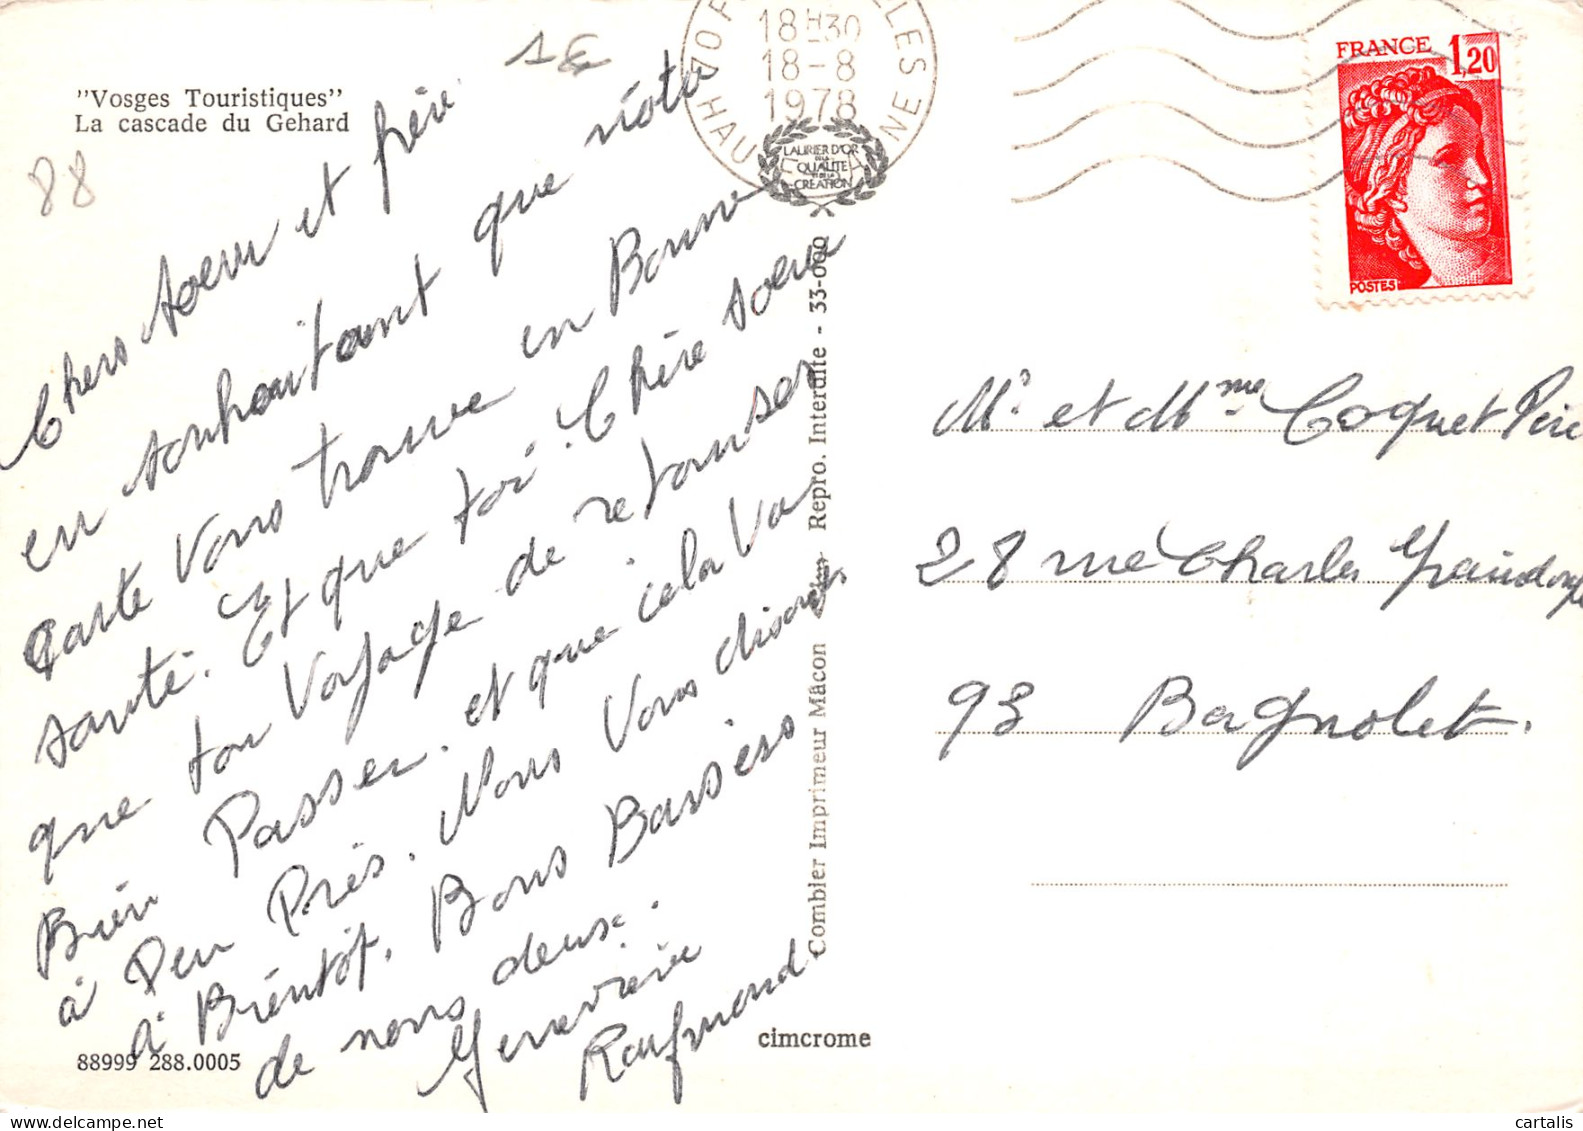 "Vosges Touristiques"
La cascade du Gehard
88
1€
Chers soeur et frère
en souhaitant que nôta
Carte Vous trouve en Bonne
santé. Et que toi. Chère soeur
que ton Voyage de retour ser
Bien Passer. et que cela Va
à Peu Près. Nous Vous disons
à Bientôt. Bons Bassers
de nous deux.
Geneviève
Raymond
88999 288.0005
cimcrome
Combier Imprimeur Mâcon
Repro. Interdite - 33-000
70 F LLES
18H30
18-8
1978
HAU NE
LAURIER D'OR
DE LA
QUALITÉ
ET DE LA
CRÉATION
FRANCE 1,20
POSTES
Mr et Mme Coquet Père
28 rue Charles
93 Bagnolet.
cartalis